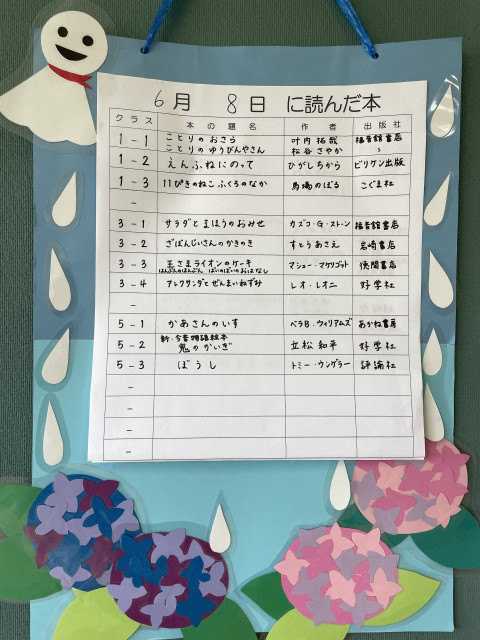 6月 8日 に読んだ本
クラス 本の題名 作者 出版社
1-1 ことりのおさら 叶内拓哉 福音館書店
ことりのゆうびんやさん 松谷さやか 〃
1-2 えんふねにのって ひがしちから ビリケン出版
1-3 11ぴきのねこ ふくろのなか 馬場のぼる こぐま社
-
3-1 サラダとまほうのおみせ カズコ・G・ストーン 福音館書店
3-2 ざぼんじいさんのかきのき すとうあさえ 岩崎書店
3-3 王さまライオンのケーキ マシュー・マケリゴット 徳間書店
はんぶんのはんぶん ばいのばいのおはなし
3-4 アレクサンダとぜんまいねずみ レオ・レオニ 好学社
-
5-1 かあさんのいす ベラB.ウィリアムズ あかね書房
5-2 新・今昔物語絵本 立松和平 好学社
鬼のかいぎ
5-3 ぼうし トミー・ウンゲラー 評論社
-
-
-
-